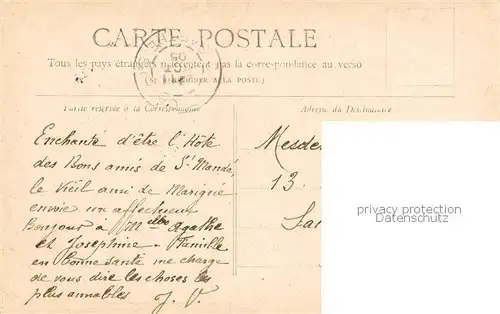 CARTE POSTALE
Tous les pays étrangers n'acceptent pas la correspondance au verso
(SE RENSEIGNER A LA POSTE)
Partie réservée à la Correspondance
Adresse du Destinataire
Enchanté d'être l'Hôte
des Bons amis de St Mandé,
le vieil ami de Marigné
envoie un affectueux
Bonjour à Mlles Agathe
et Josephine. Famille
en bonne santé me charge
de vous dire les choses les
plus aimables J. V.
Mesde
13.
privacy protection
Datenschutz